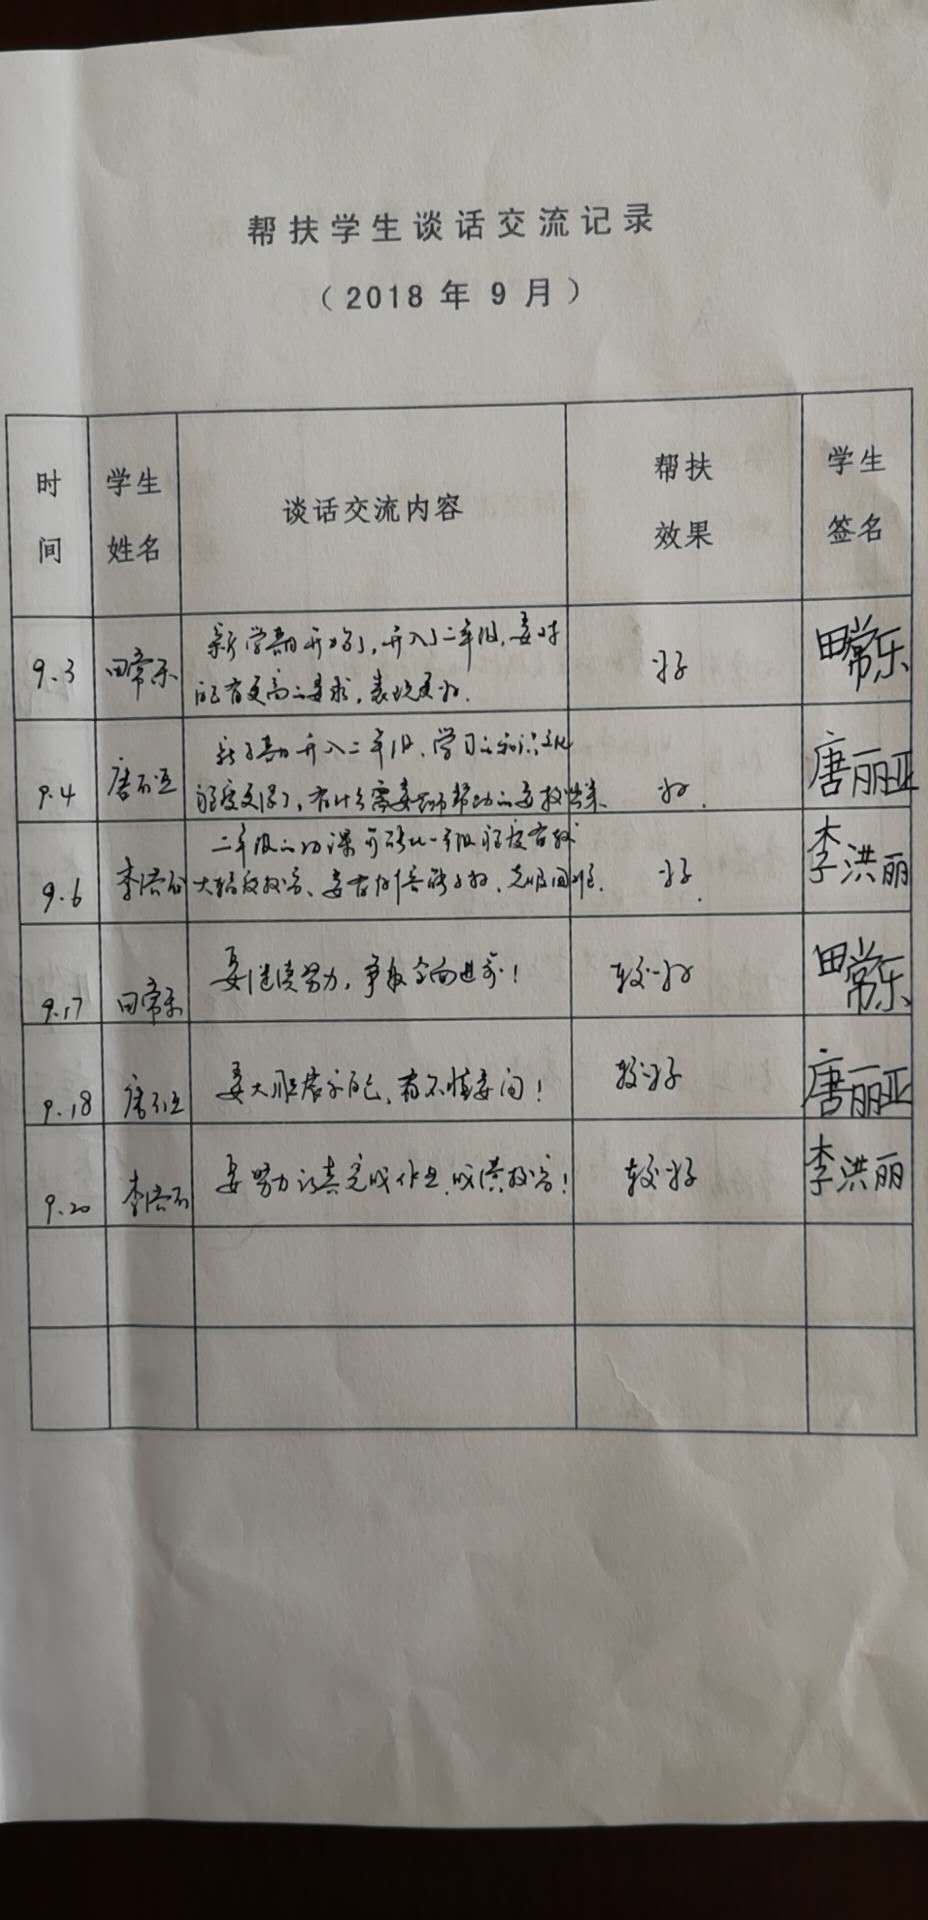 帮扶学生谈话交流记录
（2018 年 9 月）
时间 学生姓名 谈话交流内容 帮扶效果 学生签名
9.3 田常乐 新学期开始了，升入了二年级，要对
自己有更高的要求，表现更好. 好 田常乐
9.4 唐丽亚 新学期升入二年级，学习的知识文化
程度更深了，有什么需要老师帮助的 好. 唐丽亚
9.6 李洪丽 二年级的功课可能比一年级程度有较
大幅度提高、要有 克服困难. 好. 李洪丽
9.17 田常乐 要继续努力，争取全面进步！ 较好 田常乐
9.18 唐丽亚 要大胆展示自己，有不懂要问！ 较好 唐丽亚
9.20 李洪丽 要努力认真完成作业，成绩提高！ 较好 李洪丽